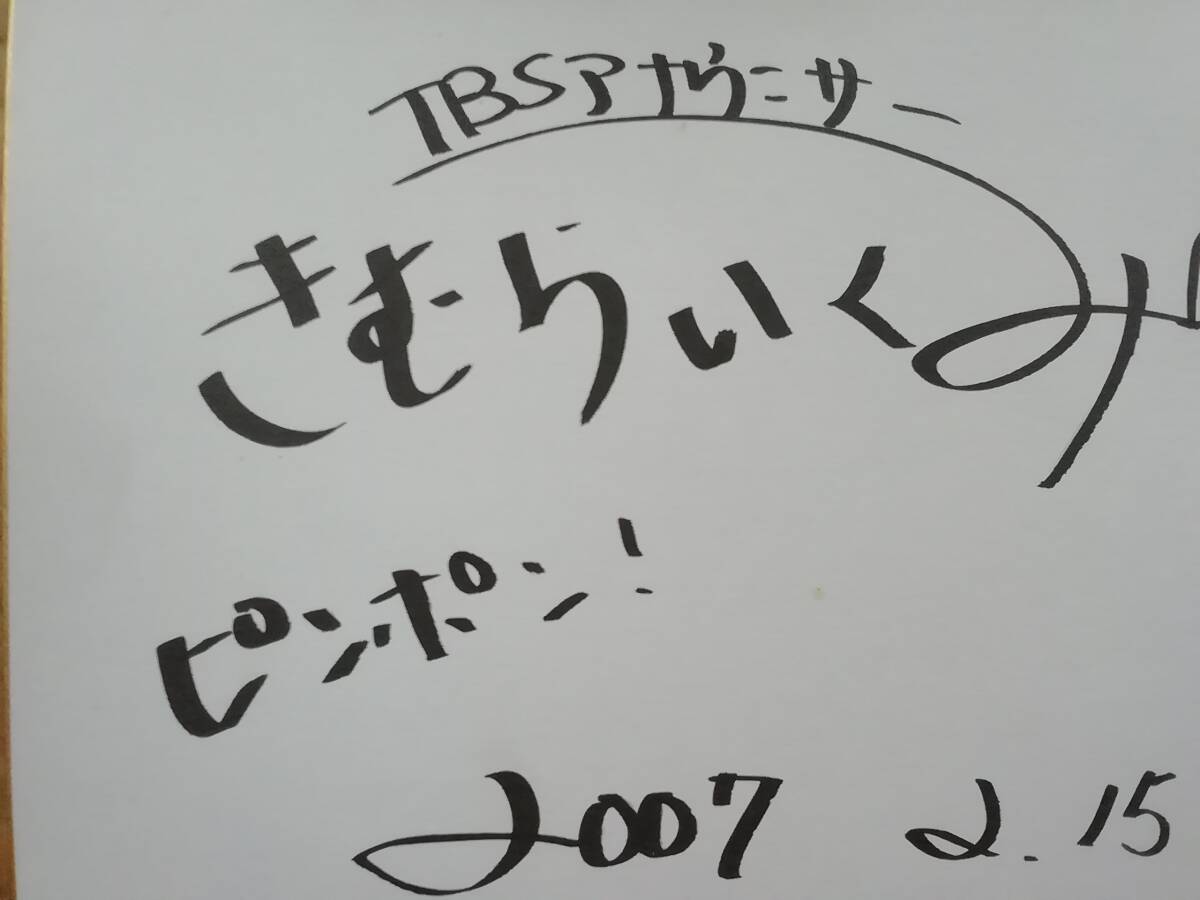 TBSアナウンサー
きむらいくみ
ピンポン!
2007 2.15